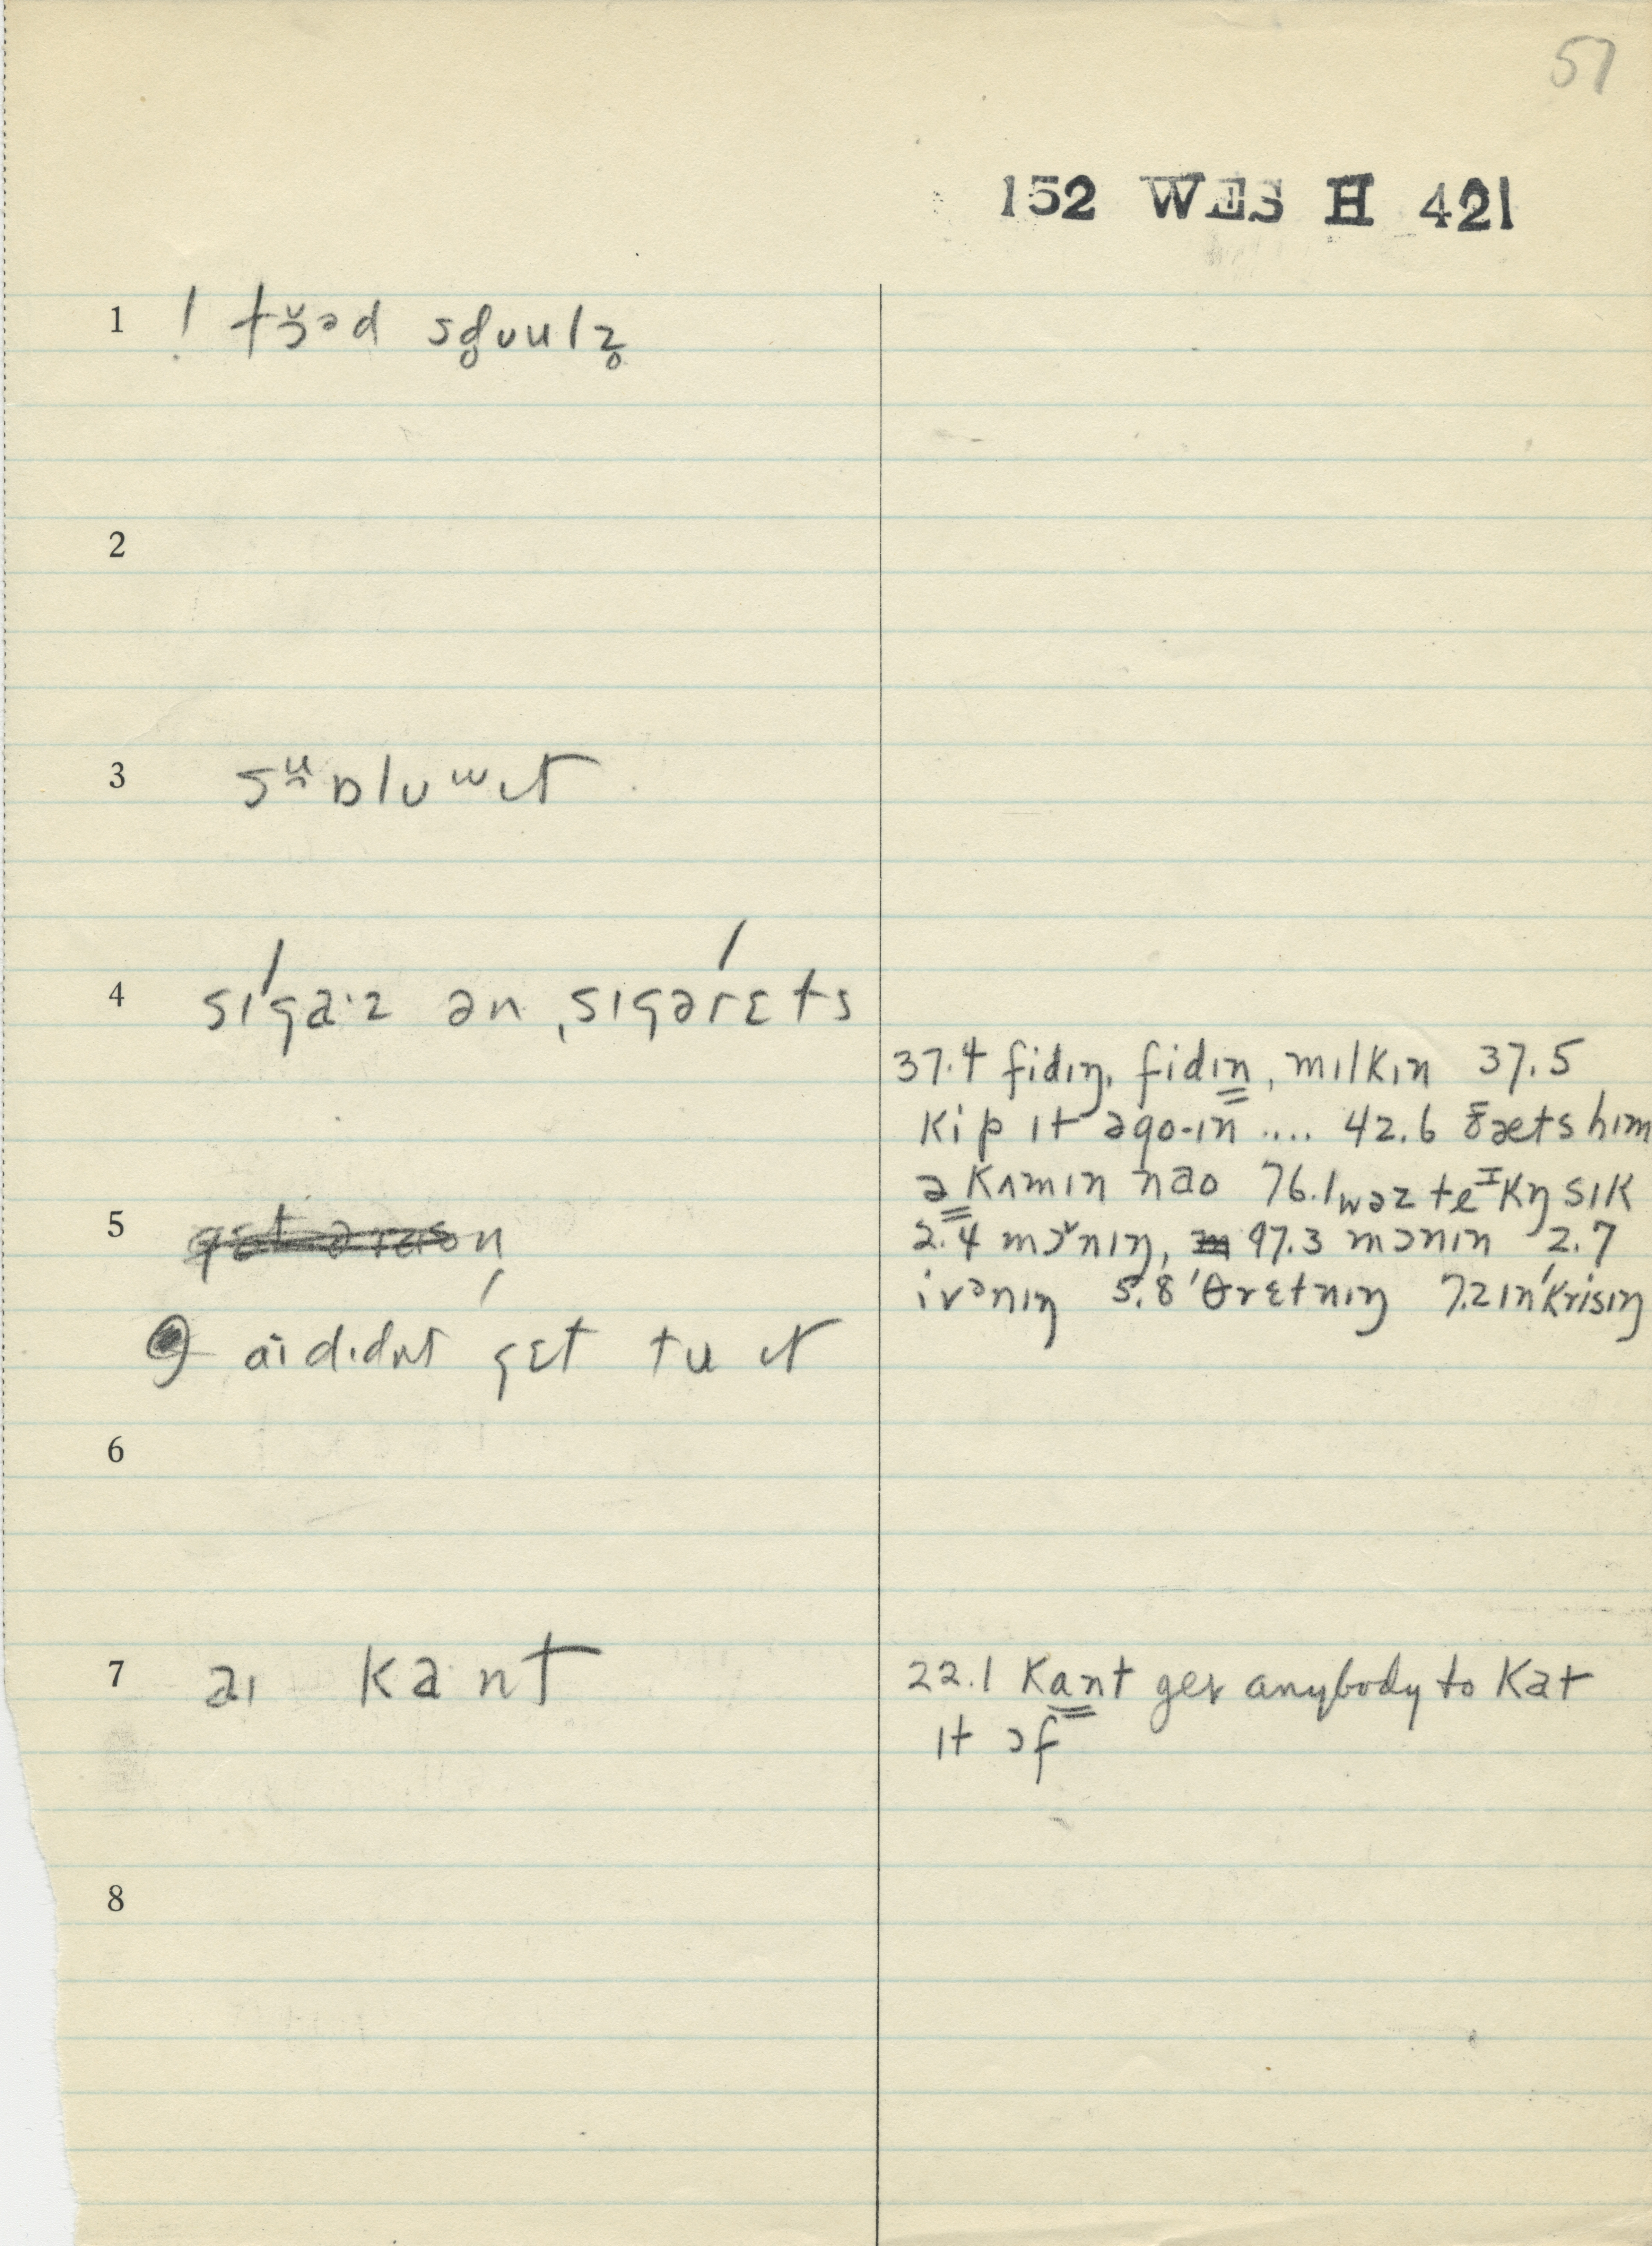 57
152 WES H 421
1 ! tɜ̆əd
2
3
4 sɪgaˑz ən ˌsɪgərɛts
37.4 fidɪŋ, fidɪn, mɪlkɪn 37.5
kip ɪt əgo-ɪn .... 42.6 ðæts him
ə kʌmɪn nao 76.1 wəz teᴵkŋ sɪk
5
2.4 mɔ̆nɪŋ, 97.3 mɔnɪn 2.7
ivənɪŋ 5.8 'θrɛtnɪŋ 7.2 ɪn'krisɪŋ
aɪ dɪdnt gɛt tu ɪt
6
7 aɪ kant
22.1 Kant get anybody to Kat
ɪt ɔf
8